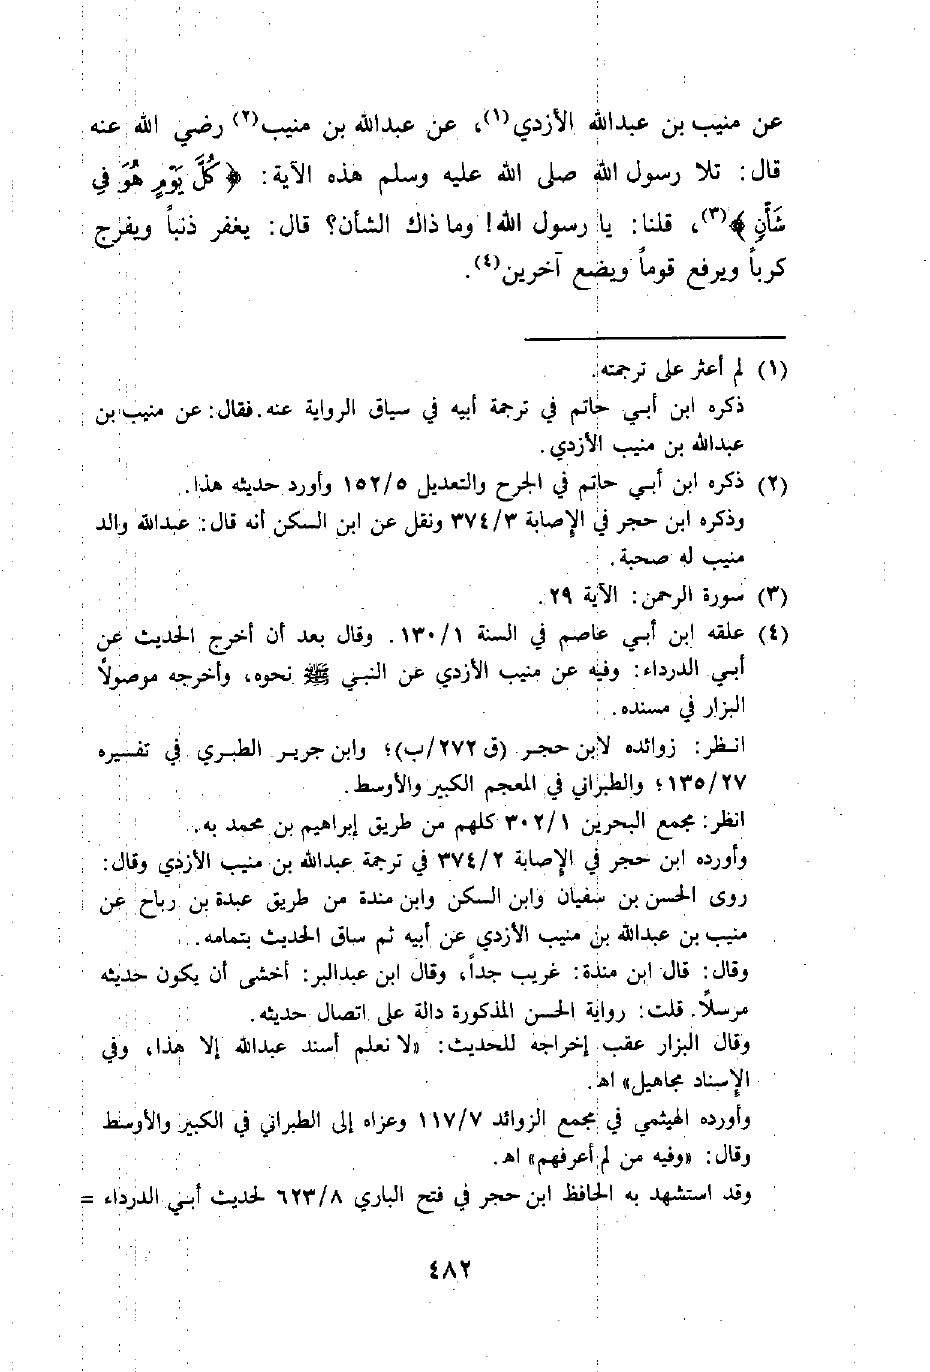 عن منيب بن عبدالله الأزدي(١)، عن عبدالله بن منيب(٢) رضي الله عنه
قال: تلا رسول الله صلى الله عليه وسلم هذه الآية: ﴿كُلَّ يَوْمٍ هُوَ فِي
شَأْنٍ﴾(٣)، قلنا: يا رسول الله! وما ذاك الشأن؟ قال: يغفر ذنباً ويفرج
كرباً ويرفع قوماً ويضع آخرين(٤).
(١) لم أعثر على ترجمته.
ذكره ابن أبي حاتم في ترجمة أبيه في سياق الرواية عنه. فقال: عن منيب بن
عبدالله بن منيب الأزدي.
(٢) ذكره ابن أبي حاتم في الجرح والتعديل ١٥٢/٥ وأورد حديثه هذا.
وذكره ابن حجر في الإصابة ٣٧٤/٣ ونقل عن ابن السكن أنه قال: عبدالله والد
منيب له صحبة.
(٣) سورة الرحمن: الآية ٢٩.
(٤) علقه ابن أبي عاصم في السنة ١٣٠/١. وقال بعد أن أخرج الحديث عن
أبي الدرداء: وفيه عن منيب الأزدي عن النبي ﷺ نحوه، وأخرجه موصولاً
البزار في مسنده.
انظر: زوائده لابن حجر (ق ٢٧٢/ب)؛ وابن جرير الطبري في تفسيره
١٣٥/٢٧؛ والطبراني في المعجم الكبير والأوسط.
انظر: مجمع البحرين ٣٠٢/١ كلهم من طريق إبراهيم بن محمد به.
وأورده ابن حجر في الإصابة ٣٧٤/٢ في ترجمة عبدالله بن منيب الأزدي وقال:
روى الحسن بن سفيان وابن السكن وابن مندة من طريق عبدة بن رباح عن
منيب بن عبدالله بن منيب الأزدي عن أبيه ثم ساق الحديث بتمامه.
وقال: قال ابن مندة: غريب جداً، وقال ابن عبدالبر: أخشى أن يكون حديثه
مرسلاً. قلت: رواية الحسن المذكورة دالة على اتصال حديثه.
وقال البزار عقب إخراجه للحديث: «لا نعلم أسند عبدالله إلا هذا، وفي
الإسناد مجاهيل» اهـ.
وأورده الهيثمي في مجمع الزوائد ١١٧/٧ وعزاه إلى الطبراني في الكبير والأوسط
وقال: «وفيه من لم أعرفهم» اهـ.
وقد استشهد به الحافظ ابن حجر في فتح الباري ٦٢٣/٨ لحديث أبي الدرداء =
٤٨٢